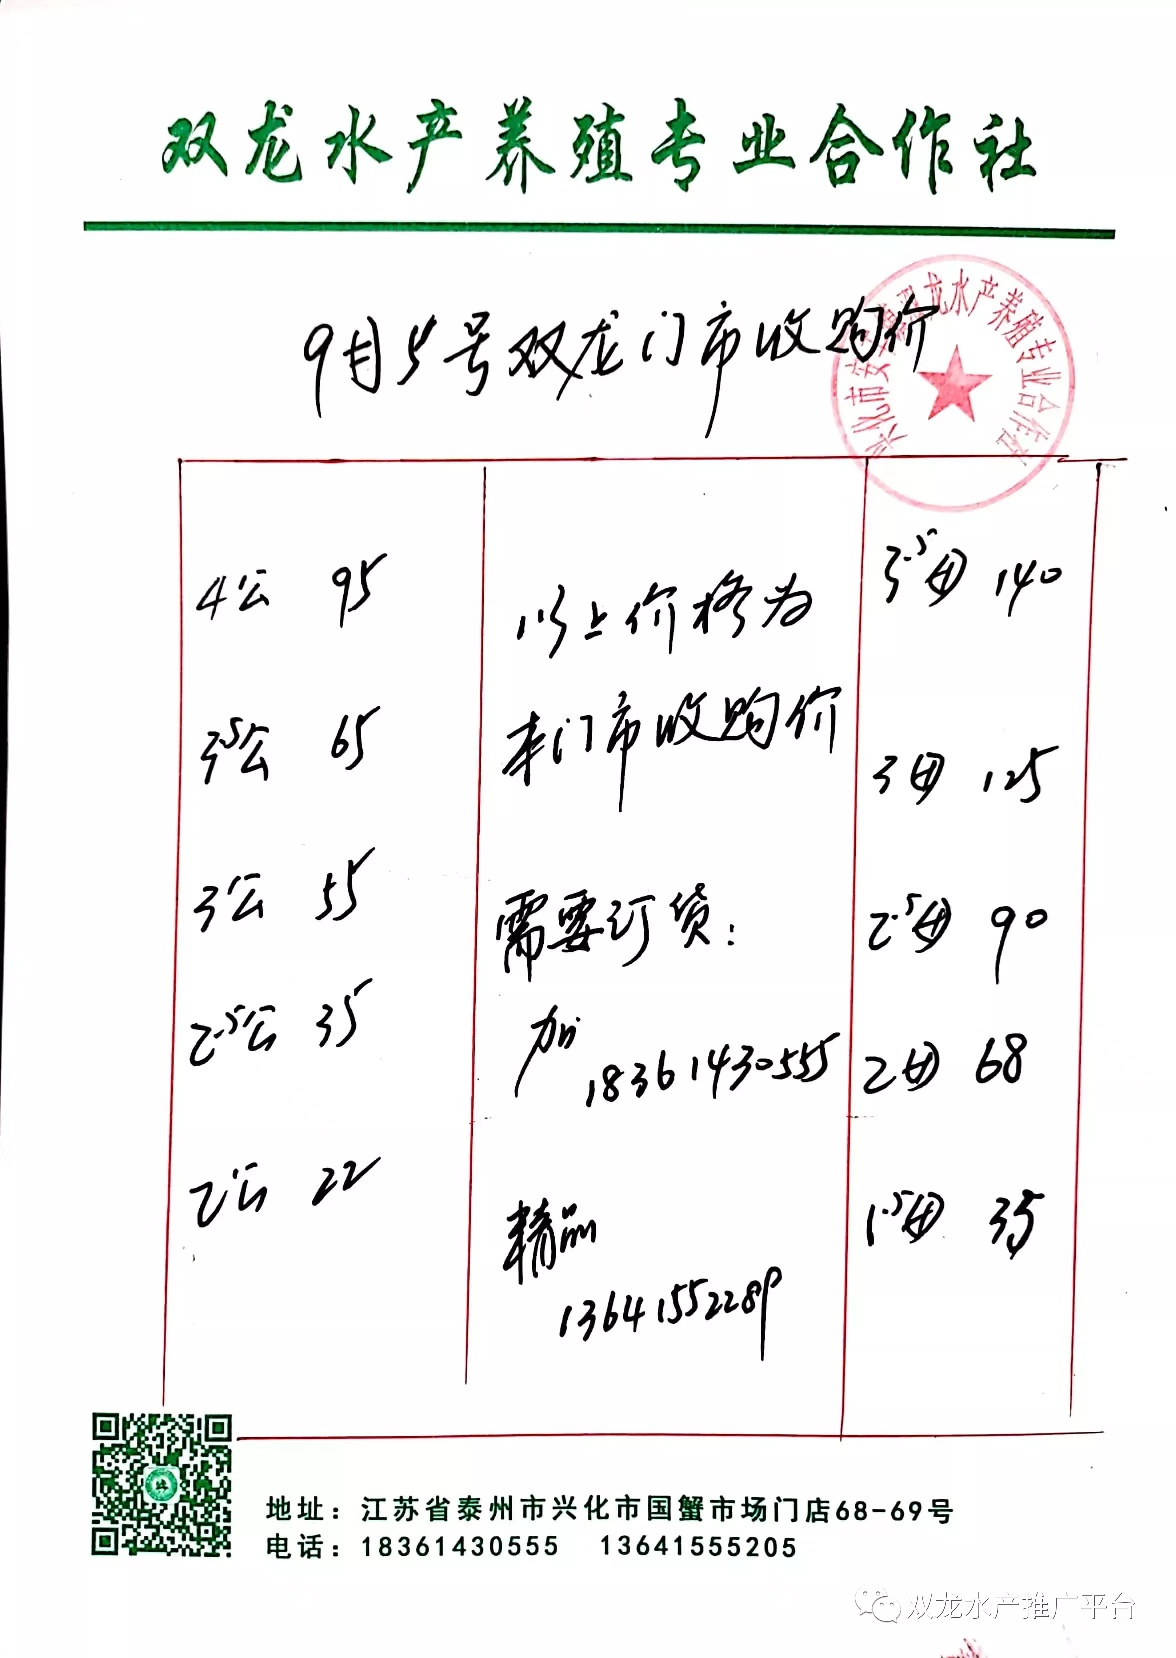 双龙水产养殖专业合作社
9月5号双龙门市收购价
4公 95
3.5公 65
3公 55
2.5公 35
2公 22
以上价格为
本门市收购价
需要订货:
加
18361430555
精品
13641552289
3.5母 140
3母 125
2.5母 90
2母 68
1.5母 35
地址:江苏省泰州市兴化市国蟹市场门店68-69号
电话:18361430555 13641555205
双龙水产推广平台